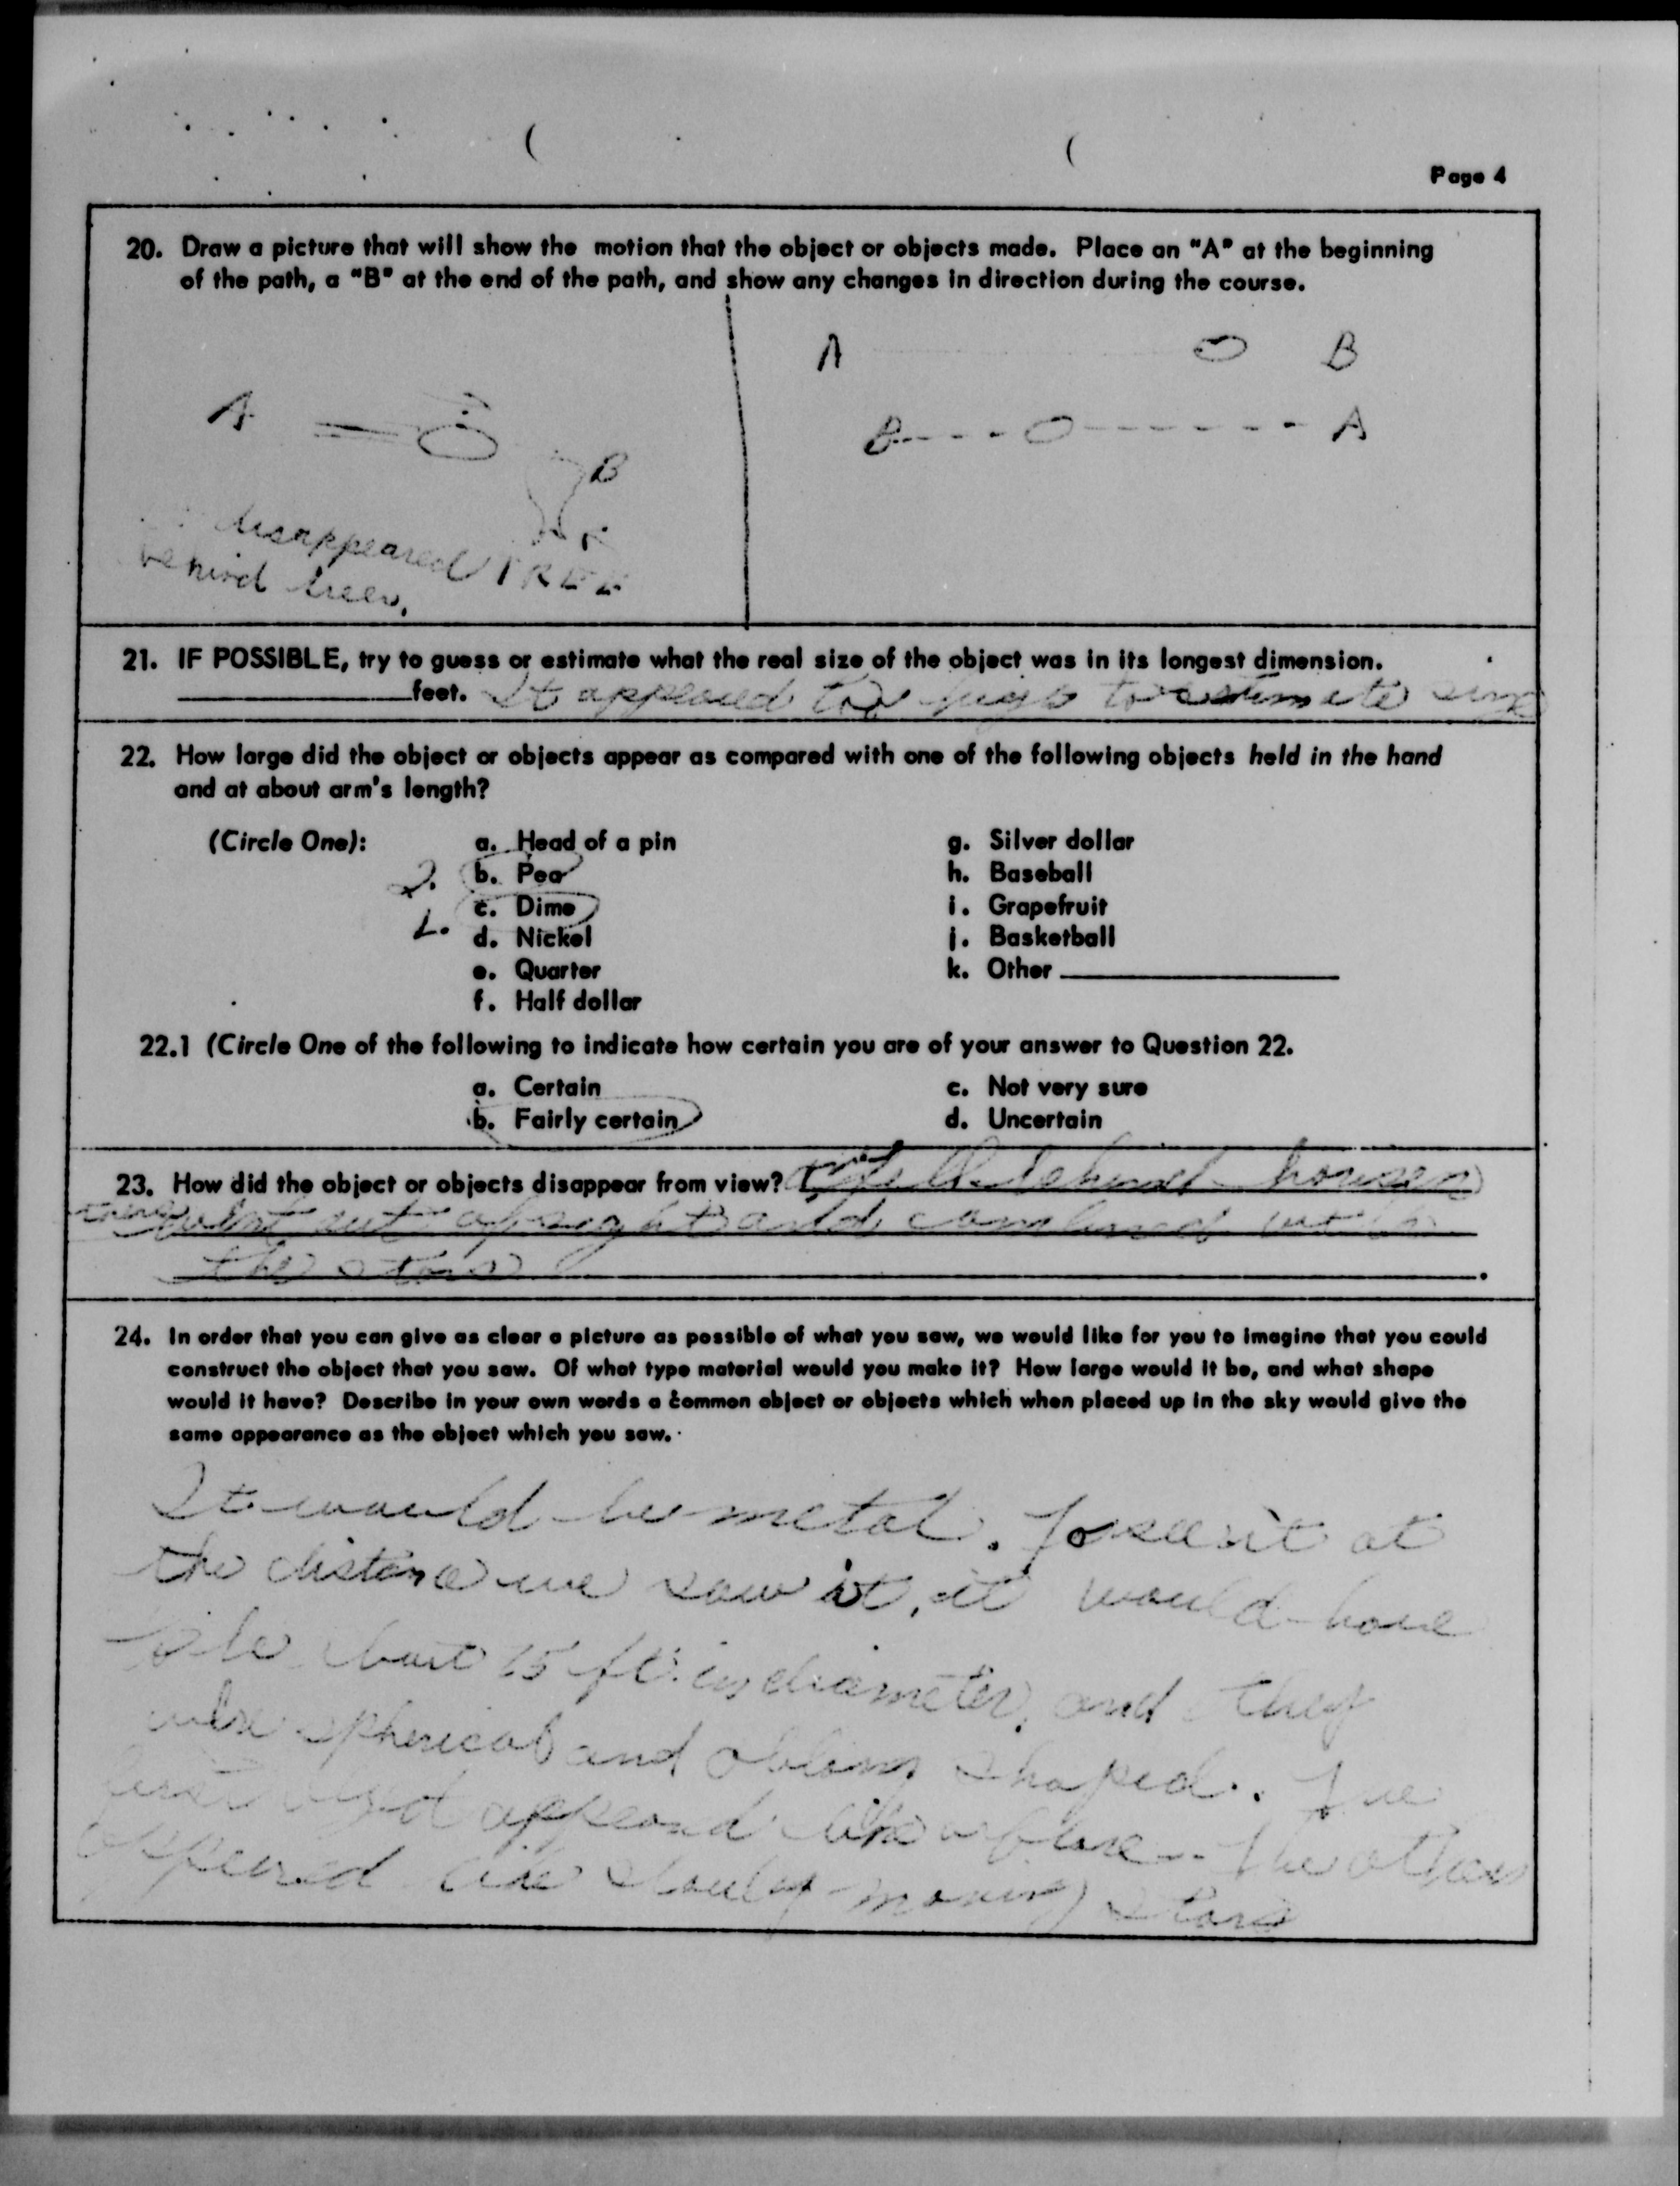 Page 4
20. Draw a picture that will show the motion that the object or objects made. Place an "A" at the beginning
of the path, a "B" at the end of the path, and show any changes in direction during the course.
A B
A
B A
B
disappeared TREE
behind trees.
21. IF POSSIBLE, try to guess or estimate what the real size of the object was in its longest dimension.
feet. It appeared too high to estimate size
22. How large did the object or objects appear as compared with one of the following objects held in the hand
and at about arm's length?
(Circle One): a. Head of a pin g. Silver dollar
2. b. Pea h. Baseball
1. c. Dime i. Grapefruit
d. Nickel j. Basketball
e. Quarter k. Other
f. Half dollar
22.1 (Circle One of the following to indicate how certain you are of your answer to Question 22.
a. Certain c. Not very sure
b. Fairly certain d. Uncertain
23. How did the object or objects disappear from view? behind houses
went out of sight and combined with
the stars
.
24. In order that you can give as clear a picture as possible of what you saw, we would like for you to imagine that you could
construct the object that you saw. Of what type material would you make it? How large would it be, and what shape
would it have? Describe in your own words a common object or objects which when placed up in the sky would give the
same appearance as the object which you saw.
It would be metal. To see it at
the distance we saw it, it would have
to be about 15 ft. in diameter, and they
were spherical and oblong shaped. The
first object appeared like a flare. The others
appeared like slowly moving stars